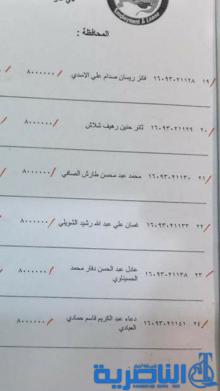 Employment & Loans
المحافظة :
١٩ ١٦٠٩٣٠٢١١٢٨ فائز ريسان صدام علي الاسدي ٨٠٠٠٠٠٠
٢٠ ١٦٠٩٣٠٢١١٢٩ ثائر حنين رهيف شلاش ٨٠٠٠٠٠٠
٢١ ١٦٠٩٣٠٢١١٣٠ محمد عبد محسن طارش الصافي ٨٠٠٠٠٠٠
٢٢ ١٦٠٩٣٠٢١١٣٣ غسان علي عبد الله رشيد الشويلي ٨٠٠٠٠٠٠
٢٣ ١٦٠٩٣٠٢١١٣٨ عادل عبد الحسن دفار محمد
الحسيناوي ٨٠٠٠٠٠٠
٢٤ ١٦٠٩٣٠٢١١٤١ دعاء عبد الكريم قاسم حمادي
العبادي ٨٠٠٠٠٠٠
الناصرية